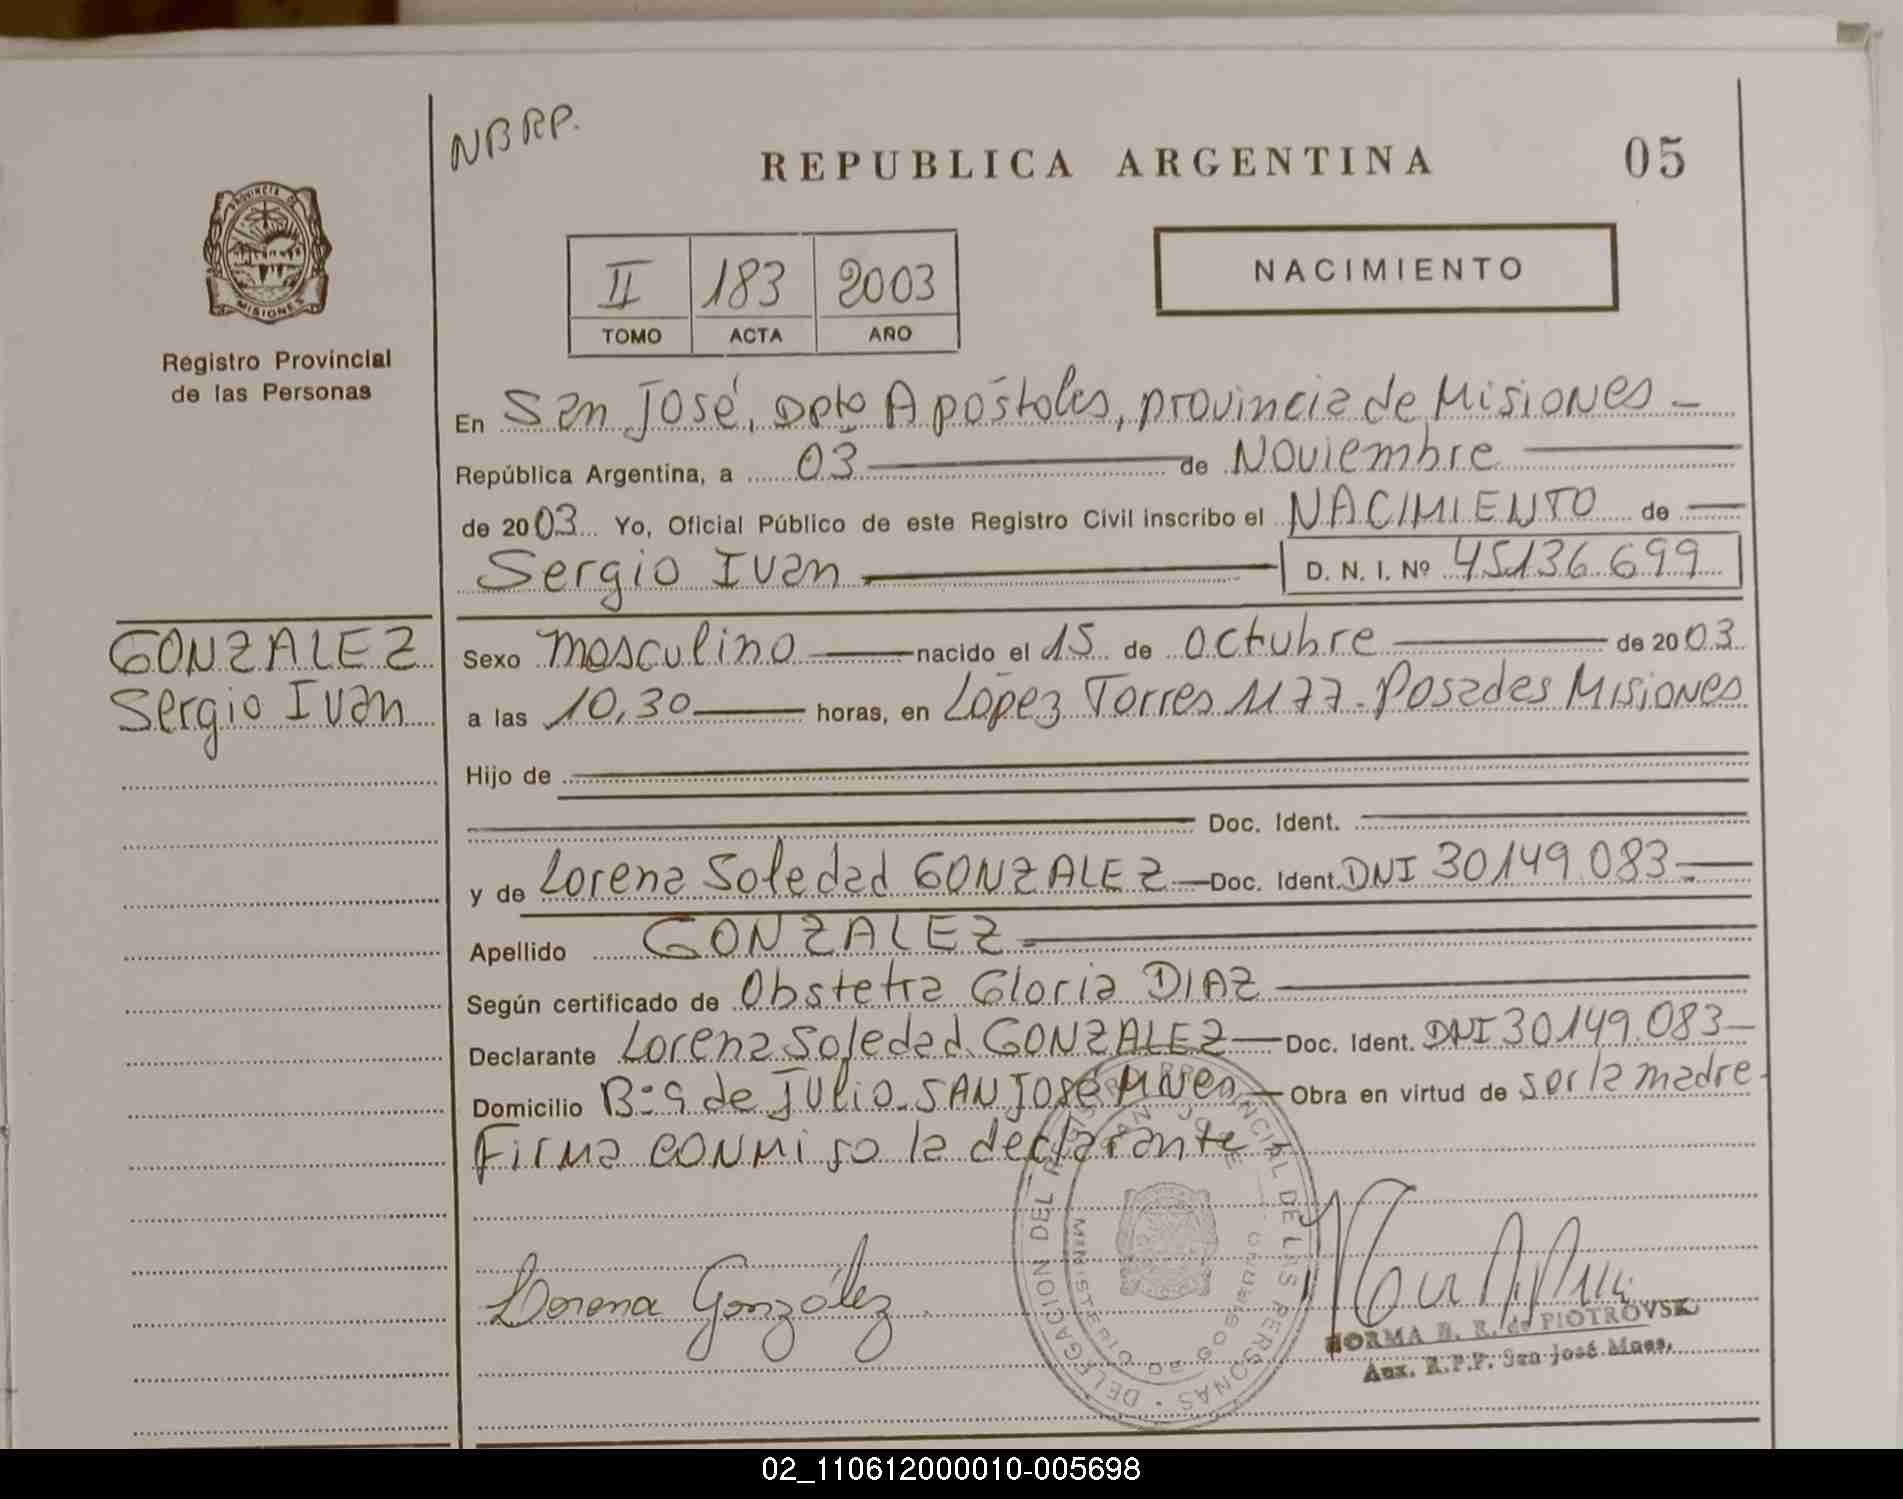 NBRP.
REPUBLICA ARGENTINA 05
PROVINCIA DE
MISIONES
Registro Provincial
de las Personas
II 183 2003
TOMO ACTA AÑO
NACIMIENTO
En San José, Dpto Apóstoles, provincia de Misiones -
República Argentina, a 03 de Noviembre
de 2003 Yo, Oficial Público de este Registro Civil inscribo el NACIMIENTO de
Sergio Ivan D. N. I. Nº 45136.699
GONZALEZ
Sergio Ivan
Sexo masculino nacido el 15 de octubre de 2003
a las 10,30 horas, en López Torres 1177-Posadas Misiones
Hijo de
Doc. Ident.
y de Lorena Soledad GONZALEZ Doc. Ident. DNI 30149.083
Apellido GONZALEZ
Según certificado de Obstetra Gloria DIAZ
Declarante Lorena Soledad GONZALEZ Doc. Ident. DNI 30149.083
Domicilio Bº 9 de Julio-SAN José Mnes Obra en virtud de ser la madre
Firma conmigo la declarante
Lorena González.
DELEGACION DEL REGISTRO PROVINCIAL DE LAS PERSONAS
MINISTERIO DE GOBIERNO
SAN JOSE
NORMA B. R. de PIOTROVSKI
Aux. R.P.P. San José Mnes.
02_110612000010-005698